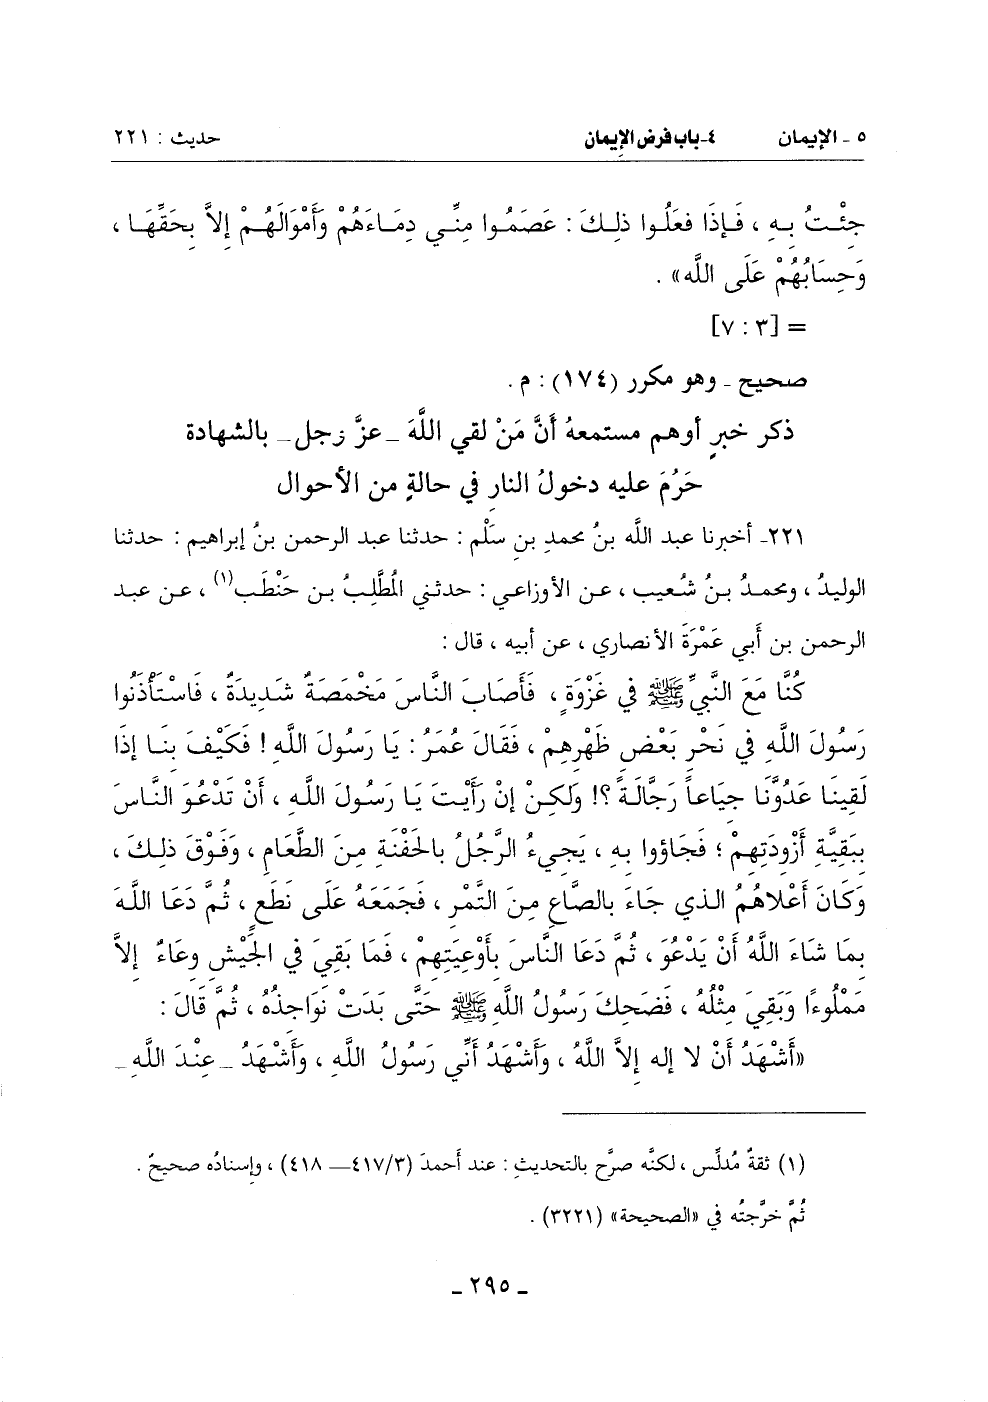 ٥ ـ الإيمان ٤ـ باب فرض الإيمان حديث : ٢٢١
جِئْتُ بِهِ ، فَإِذَا فعَلُوا ذلِكَ : عَصَمُوا مِنِّي دِمَاءَهُمْ وَأَمْوَالَهُمْ إلاَّ بِحَقِّهَا ،
وَحِسَابُهُمْ عَلَى اللَّه» .
= [٣ : ٧]
صحيح ـ وهو مكرر (١٧٤) : م .
ذكر خبرٍ أوهم مستمعهُ أَنَّ مَنْ لقي اللَّهَ ـ عزَّ وجل ـ بالشهادة
حَرُمَ عليه دخولُ النارِ في حالةٍ من الأحوال
٢٢١ـ أخبرنا عبد اللَّه بنُ محمدِ بنِ سَلْم : حدثنا عبد الرحمن بنُ إبراهيم : حدثنا
الوليدُ ، ومحمدُ بنُ شُعيب ، عن الأوزاعي : حدثني المُطَّلِبُ بن حَنْطَب(١) ، عن عبد
الرحمن بن أَبي عَمْرَةَ الأنصاري ، عن أبيه ، قال :
كُنَّا مَعَ النَّبيِّ ﷺ في غَزْوَةٍ ، فَأَصَابَ النَّاسَ مَخْمَصَةٌ شَدِيدَةٌ ، فَاسْتَأْذَنُوا
رَسُولَ اللَّهِ في نَحْرِ بَعْضِ ظَهْرِهِمْ ، فَقَالَ عُمَرُ : يَا رَسُولَ اللَّهِ ! فَكَيْفَ بنَا إذَا
لَقِينَا عَدُوَّنَا جِيَاعاً رَجَّالَةً ؟! وَلكِنْ إنْ رَأَيْتَ يَا رَسُولَ اللَّهِ ، أَنْ تَدْعُوَ النَّاسَ
بِبَقِيَّةِ أَزْودَتِهِمْ ؛ فَجَاؤوا بهِ ، يَجيءُ الرَّجُلُ بالحَفْنَةِ مِنَ الطَّعَامِ ، وَفَوْقَ ذلِكَ ،
وَكَانَ أَعْلاهُمُ الذي جَاءَ بالصَّاعِ مِنَ التَّمْرِ ، فَجَمَعَهُ عَلَى نَطَعٍ ، ثُمَّ دَعَا اللَّهَ
بِمَا شَاءَ اللَّهُ أَنْ يَدْعُوَ ، ثُمَّ دَعَا النَّاسَ بِأَوْعِيَتِهِمْ ، فَمَا بَقِيَ في الجَيْشِ وعَاءٌ إلاَّ
مَمْلُوءًا وَبَقِيَ مِثْلُهُ ، فَضَحِكَ رَسُولُ اللَّهِ ﷺ حَتَّى بَدَتْ نَوَاجِذُهُ ، ثُمَّ قَالَ :
«أَشْهَدُ أَنْ لا إله إلاَّ اللَّهُ ، وَأَشْهَدُ أنّي رَسُولُ اللَّهِ ، وَأَشْهَدُ ـ عِنْدَ اللَّهِ ـ
(١) ثقةٌ مُدلِّس ، لكنَّه صرَّح بالتحديثِ : عند أحمدَ (٣/٤١٧ـ ٤١٨) ، وإسنادُه صحيحٌ .
ثُمَّ خرَّجتُه في «الصحيحة» (٣٢٢١) .
ـ ٢٩٥ ـ